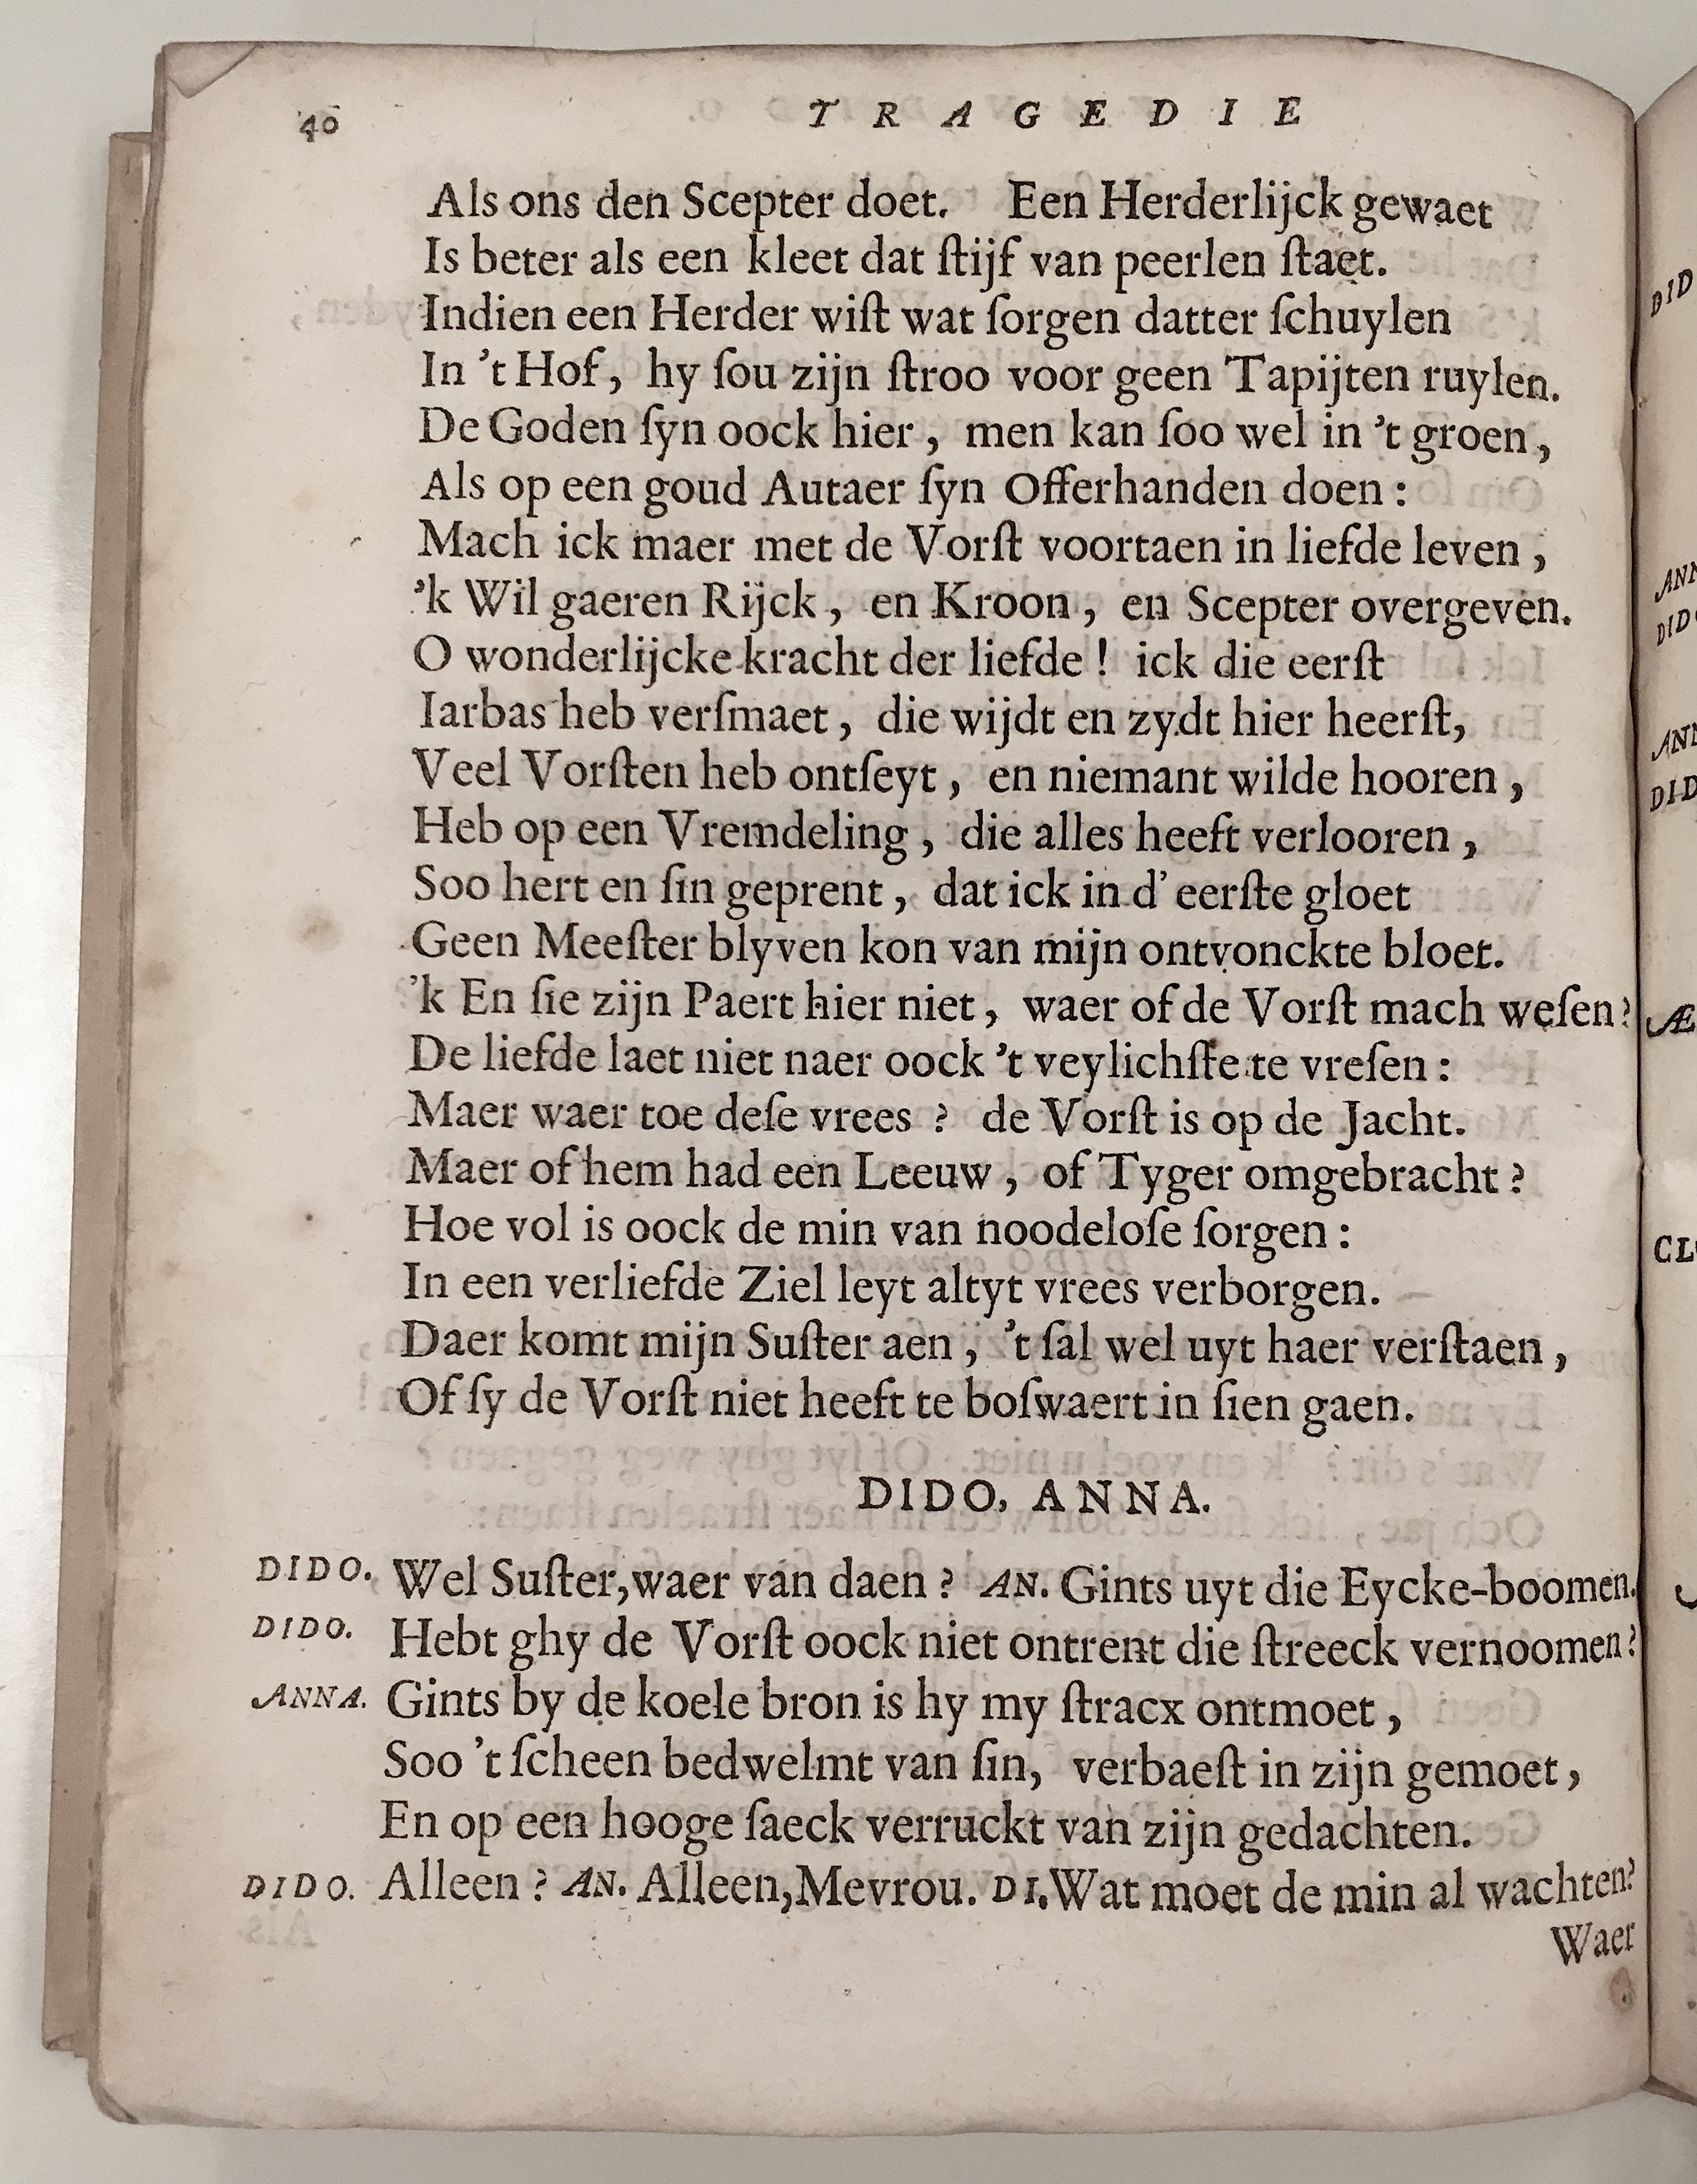 40 TRAGEDIE
Als ons den Scepter doet. Een Herderlijck gewaet
Is beter als een kleet dat ſtijf van peerlen ſtaet.
Indien een Herder wiſt wat ſorgen datter ſchuylen
In 't Hof, hy ſou zijn ſtroo voor geen Tapijten ruylen.
De Goden ſyn oock hier, men kan ſoo wel in 't groen,
Als op een goud Autaer ſyn Offerhanden doen:
Mach ick maer met de Vorſt voortaen in liefde leven,
'k Wil gaeren Rijck, en Kroon, en Scepter overgeven.
O wonderlijcke kracht der liefde! ick die eerſt
Iarbas heb verſmaet, die wijdt en zydt hier heerſt,
Veel Vorſten heb ontſeyt, en niemant wilde hooren,
Heb op een Vremdeling, die alles heeft verlooren,
Soo hert en ſin geprent, dat ick in d' eerſte gloet
Geen Meeſter blyven kon van mijn ontvonckte bloet.
'k En ſie zijn Paert hier niet, waer of de Vorſt mach weſen?
De liefde laet niet naer oock 't veylichſte te vreſen:
Maer waer toe deſe vrees? de Vorſt is op de Jacht.
Maer of hem had een Leeuw, of Tyger omgebracht?
Hoe vol is oock de min van noodeloſe ſorgen:
In een verliefde Ziel leyt altyt vrees verborgen.
Daer komt mijn Suſter aen, 't ſal wel uyt haer verſtaen,
Of ſy de Vorſt niet heeft te boſwaert in ſien gaen.
DIDO, ANNA.
DIDO. Wel Suſter, waer van daen? AN. Gints uyt die Eycke-boomen.
DIDO. Hebt ghy de Vorſt oock niet ontrent die ſtreeck vernoomen?
ANNA. Gints by de koele bron is hy my ſtracx ontmoet,
Soo 't ſcheen bedwelmt van ſin, verbaeſt in zijn gemoet,
En op een hooge ſaeck verruckt van zijn gedachten.
DIDO. Alleen? AN. Alleen, Mevrou. DI. Wat moet de min al wachten?
Waer